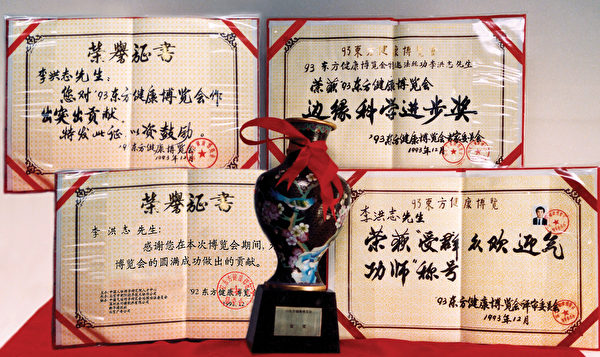 荣誉证书
李洪志先生：
您对'93东方健康博览会作
出突出贡献，
特发此证 以资鼓励。
'92东方健康博览会
1993.12月
93東方健康博览会
93东方健康博览会 李洪志先生：
荣获'93东方健康博览会
边缘科学进步奖
'93东方健康博览会
1993年12月
荣誉证书
李洪志 先生：
感谢您在本次博览会期间，
博览会的圆满成功做出的贡献。
'92 东方健康博览会
93東方健康博览
李洪志先生
荣获"受群众欢迎气
功师"称号
93东方健康博览会评审委员会
1993年12月